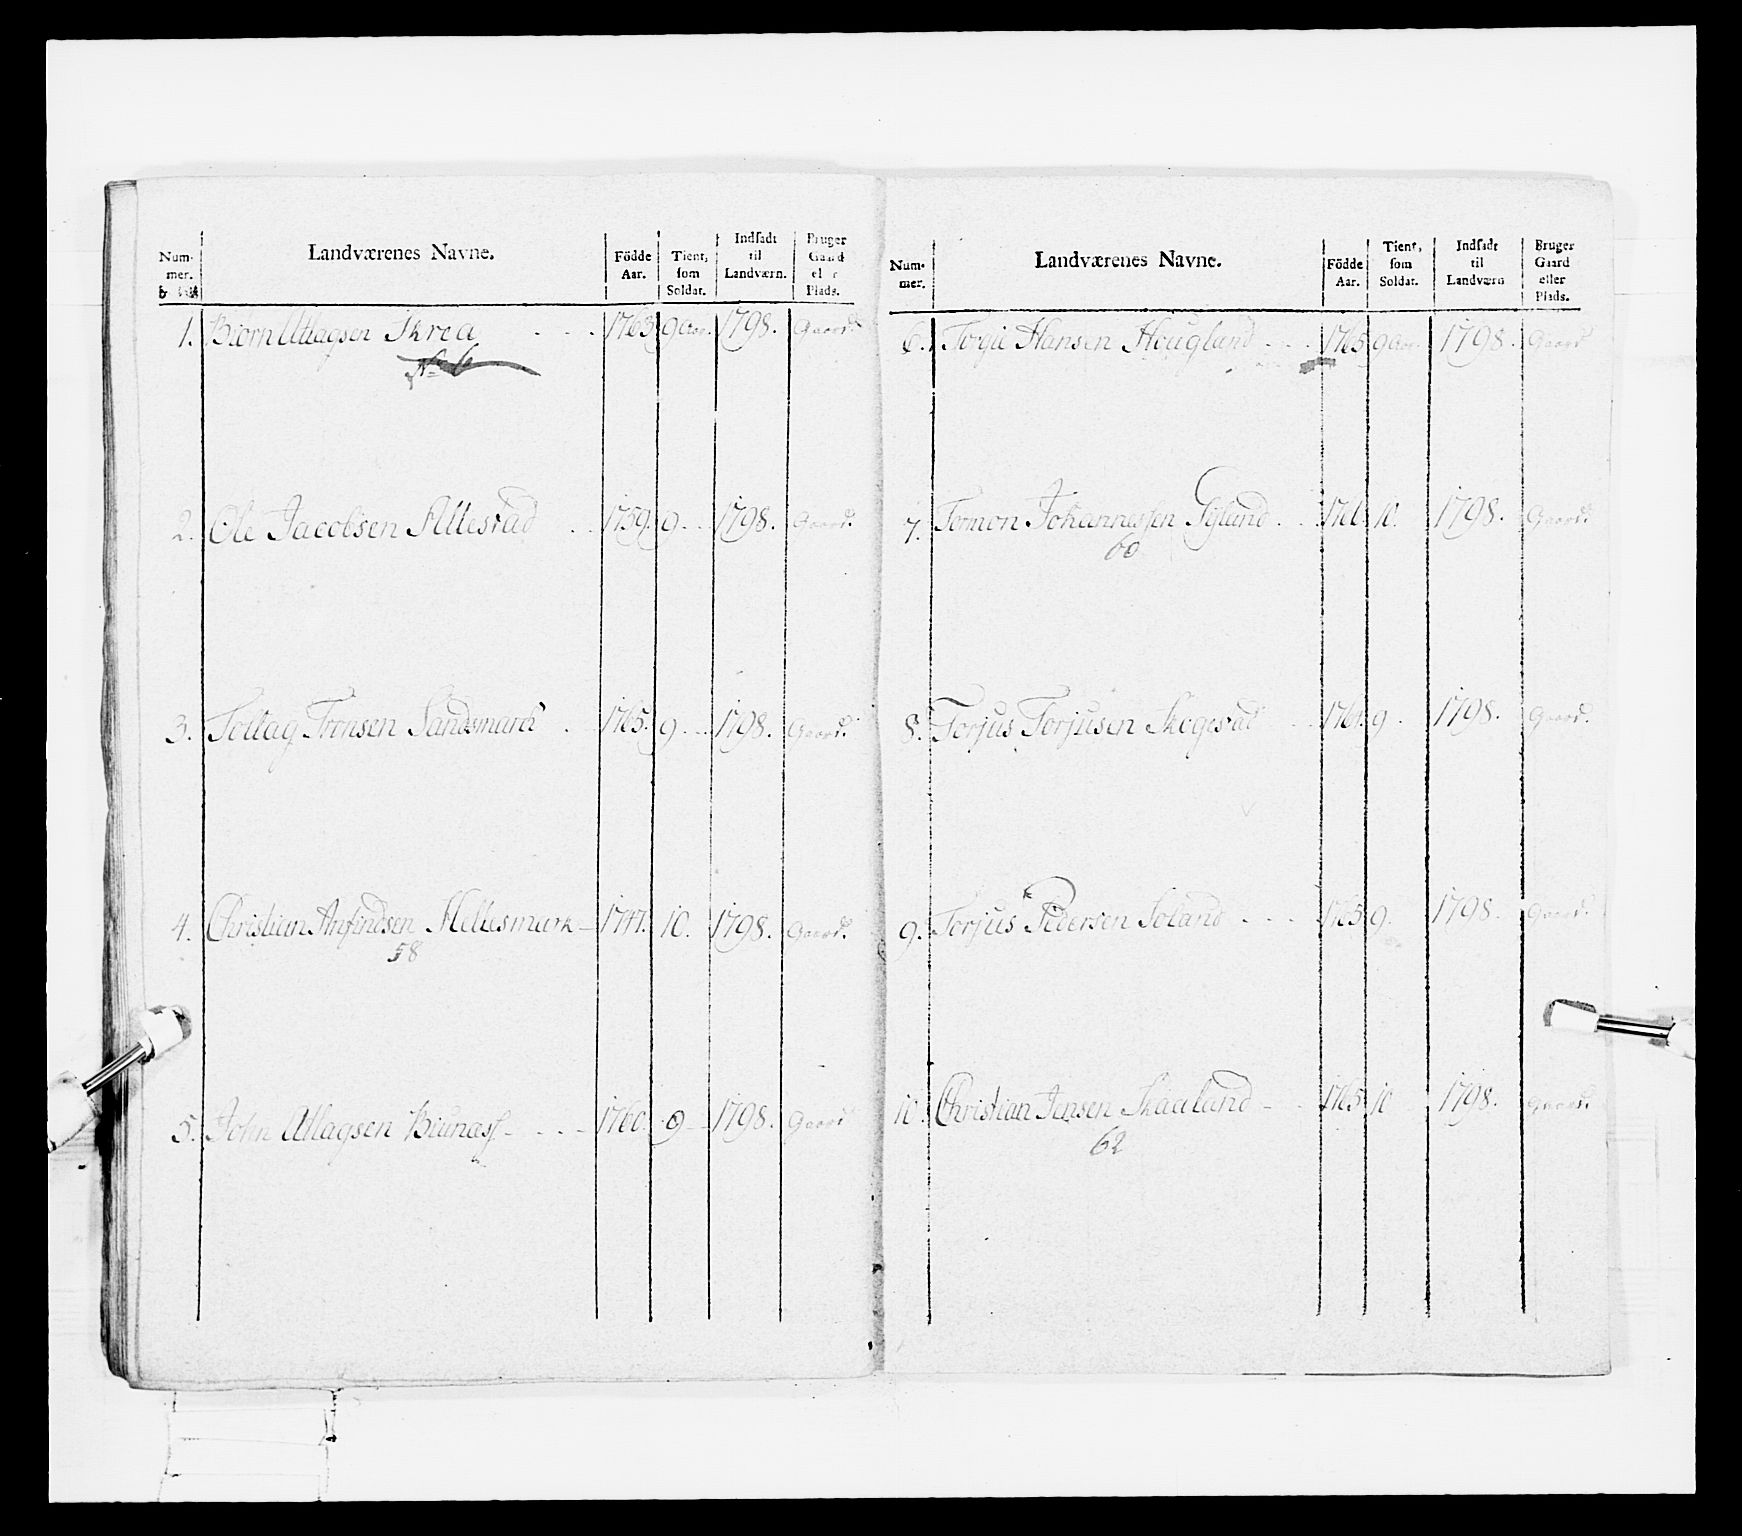 Num-
mer.
Landværenes Navne.
Födde
Aar.
Tient,
som
Soldat.
Indsadt
til
Landværn.
Bruger
Gaard
eller
Plads.
1. Biørn Atlagsen Skrea - - - 1763. 9 Aar. 1798. Gaard.
No 6
2. Ole Jacobsen Allestad - - 1759. 9. - - 1798. Gaard.
3. Tollag Tronsen Sandsmarck - 1765. 9. - - 1798. Gaard.
4. Christian Anfindsen Hellesmark - 10. 1798. Gaard.
58
5. John Atlagsen Biunæss - - - - 1760. 9 - - 1798. Gaard
Num-
mer.
Landværenes Navne.
Födde
Aar.
Tient,
som
Soldat.
Indsadt
til
Landværn
Bruger
Gaard
eller
Plads.
6. Torgie Hansen Hougland - - - 1765. 9 Aar. 1798. Gaard
7. Tomon Johannessen - - 10. 1798. Gaard.
60
8. Torjus Torjusen Skogestad - - 1761. 9. 1798. Gaard.
9. Torjus Pedersen Soland - - - 1765. 9. 1798. Gaard.
10. Christian Jensen Skaaland - - 1765. 10 1798. Gaard.
62